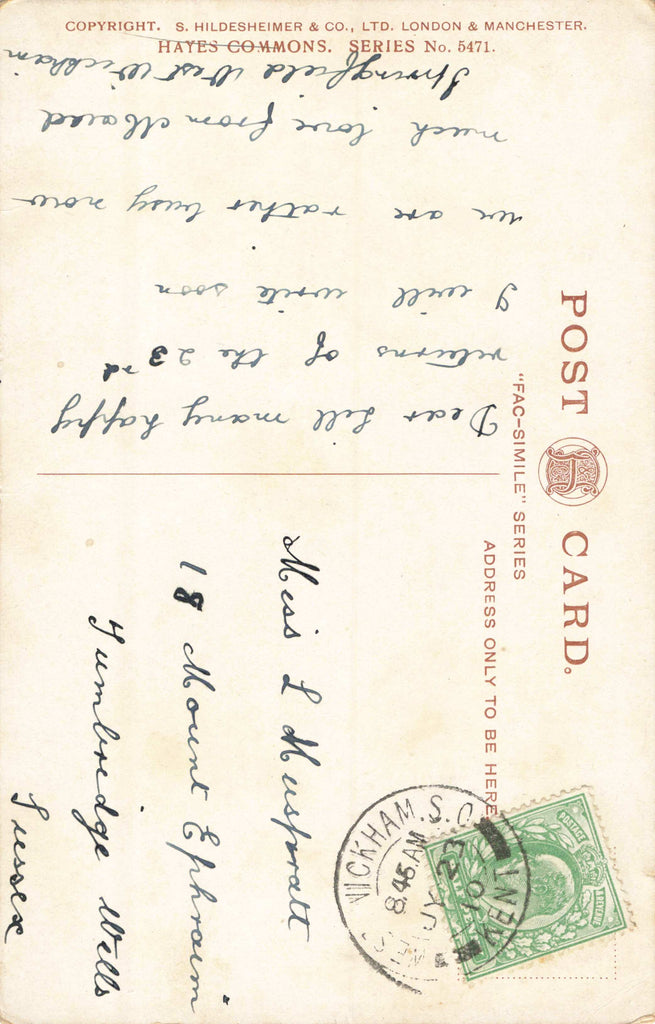 COPYRIGHT. S. HILDESHEIMER & CO., LTD. LONDON & MANCHESTER.
HAYES COMMONS. SERIES No. 5471.
POST CARD.
"FAC-SIMILE" SERIES
ADDRESS ONLY TO BE HERE
Dear Lill many happy
returns of the 23rd
I will write soon
we are rather busy now
much love from Maud
Springfield West Wickham
Miss L Muspratt
18 Mount Ephraim
Tumbridge Wells
Sussex
WICKHAM. S.O.
8.45 AM
JY 23
10
KENT
POSTAGE
REVENUE